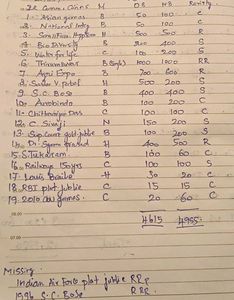 M OB NB Rarity
1. Asian games B 50 100 C
2. National Integ B 50 100 C
3. Small Family H 500 500 R
4. Bio Diversity B 200 400 C
5. Water for life C 10 200 S
6. B 1000 1000 RR
7. Agri Expo B 700 600 R
8. Patel H 500 200 C
9. S.C. Bose B 400 400 S
10. Aurobindo B 100 200 C
11. Chittaranjan Das B 100 100 C
12. C. Sivaji N 150 200 S
13. Sup. Court gold jublie B 100 200 S
14. Dr. Syama Prasad H 400 500 R
15. S. Tukaram B 100 60 C
16. Railways 150 yrs B 100 100 S
17. Louis Braille H 30 20 C
18. RBI plat jublie C 15 15 C
19. 2010 games. C 20 60 C
4615 4955
Missing.
Indian Air Force plat jublie RRR
1996 S.C. Bose RRR.